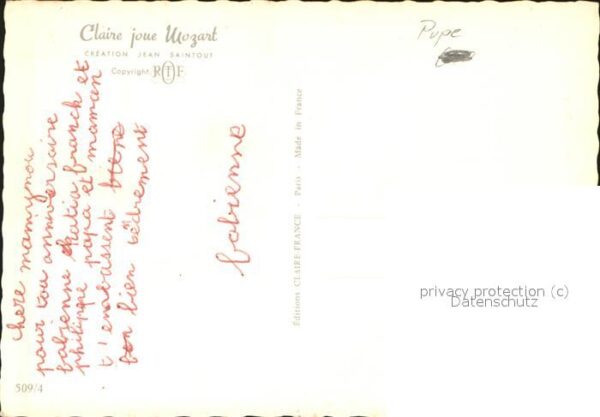 Claire joue Mozart
CRÉATION JEAN SAINTOUT
Copyright RTF
chere mamignou
pour tou anniversaire
fabienne katia franck et
philippe papa et maman
t'embassent
bien tédrement
fabienne
Editions CLAIRE-FRANCE - Paris - Made in France
509/4
Pupe
privacy protection (c)
Datenschutz